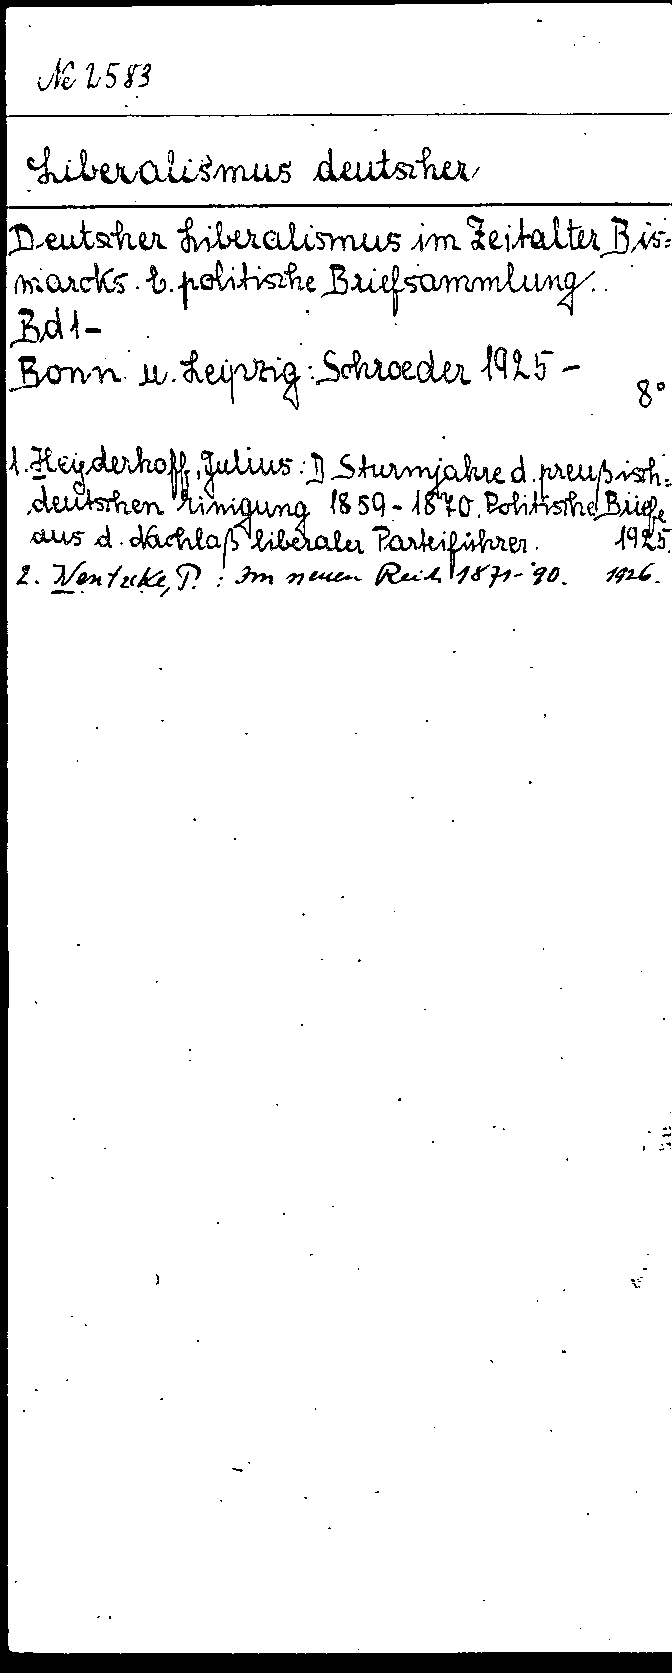 Ne 2583
Liberalismus deutscher
Deutscher Liberalismus im Zeitalter Bis=
marcks. E. politische Briefsammlung.
Bd 1-
Bonn u. Leipzig: Schroeder 1925 -
8°
1. Heyderhoff, Julius: D Sturmjahre d. preußisch=
deutschen Einigung 1859-1870. Politische Briefe
aus d. Nachlaß liberaler Parteiführer. 1925.
2. Wentzcke, P. : Im neuen Reich 1871-90. 1926.